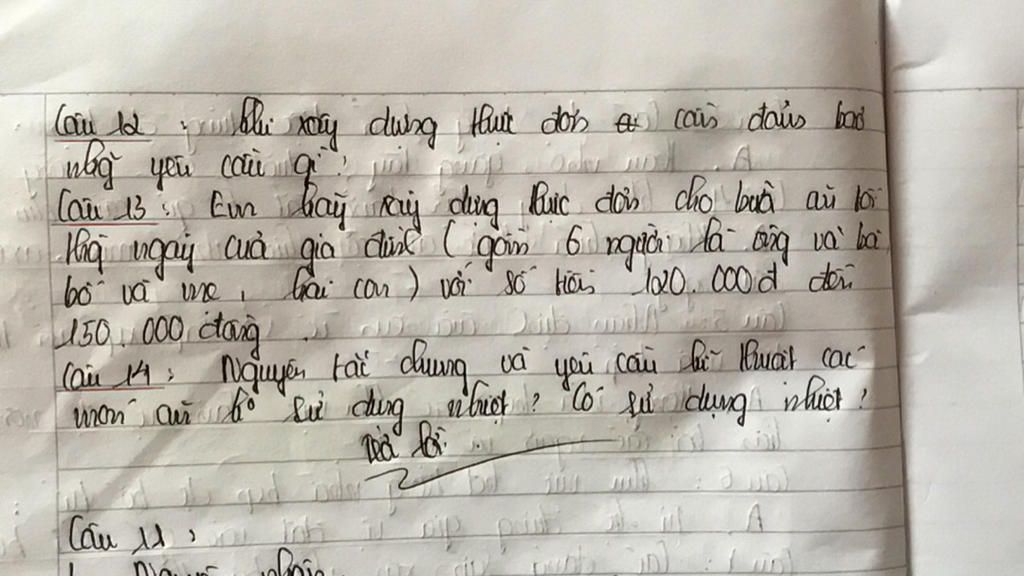 Câu 12 : Khi xây dựng thực đơn cần đảm bảo
những yêu cầu gì?
Câu 13 : Em hãy xây dựng thực đơn cho bữa ăn tối
thg ngày của gia đình (gồm 6 người là ông và bà
bố và mẹ, hai con) với số tiền 120.000đ đến
150.000 đồng
Câu 14 : Nguyên tắc chung và yêu cầu kĩ thuật các
món ăn ko sử dụng nhiệt? Có sử dụng nhiệt?
Trả lời
Câu 11 :